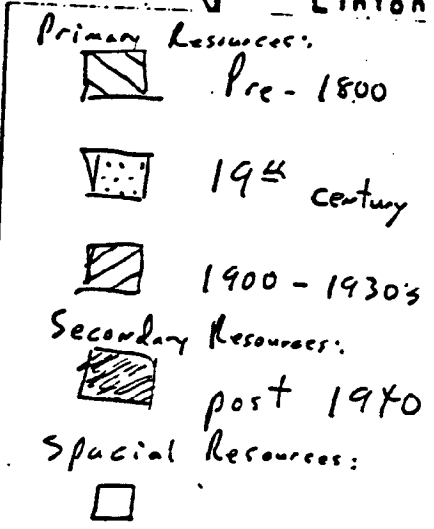 Linton
Primary Resources:
Pre - 1800
19th century
1900 - 1930's
Secondary Resources:
post 1940
Spacial Resources: